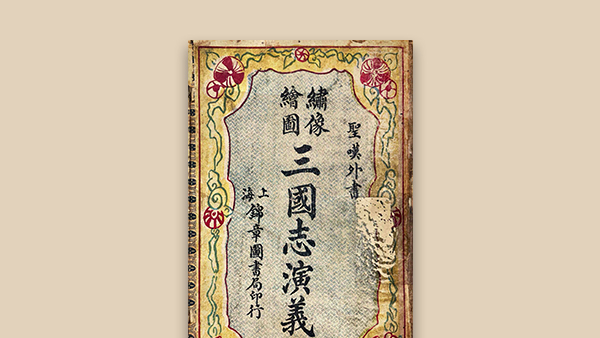 聖嘆外書
繡像
繪圖
三國志演義
上海
錦章圖書局印行